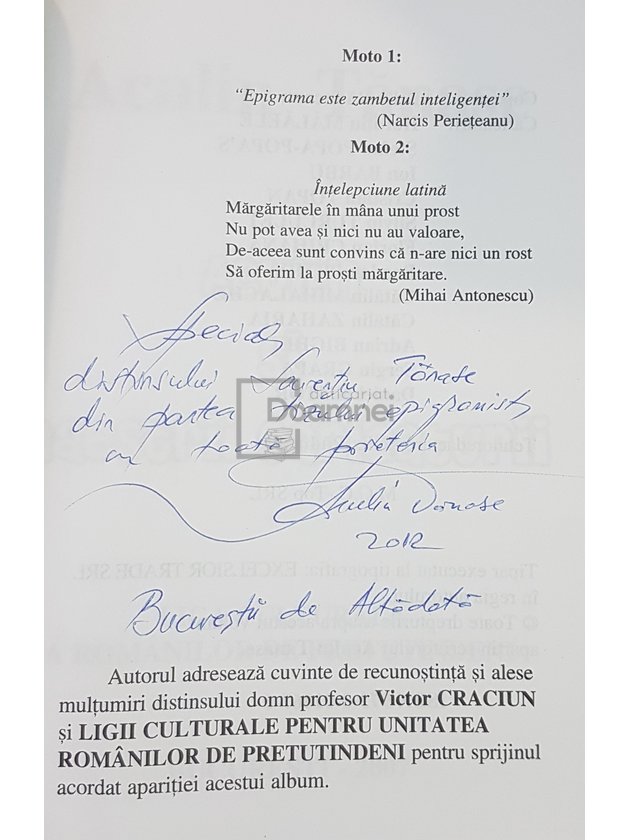 Moto 1:
“Epigrama este zambetul inteligenței”
(Narcis Periețeanu)
Moto 2:
Înțelepciune latină
Mărgăritarele în mâna unui prost
Nu pot avea și nici nu au valoare,
De-aceea sunt convins că n-are nici un rost
Să oferim la proști mărgăritare.
(Mihai Antonescu)
Special
distinsului Laurențiu Tănase
din partea epigramist
cu toată prietenia
2012
Bucureștii de Altădată
anticariat
Doamnei
Tipar executat la tipografia: EXCELSIOR TRADE SRL
Autorul adresează cuvinte de recunoștință și alese
mulțumiri distinsului domn profesor Victor CRACIUN
și LIGII CULTURALE PENTRU UNITATEA
ROMÂNILOR DE PRETUTINDENI pentru sprijinul
acordat apariției acestui album.